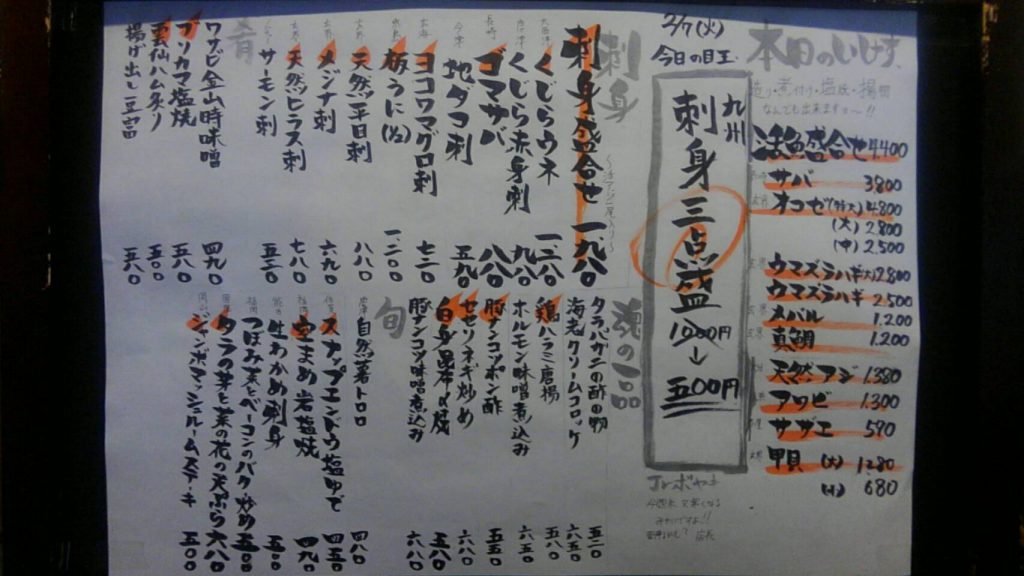 本日のいけす
造り・煮付・塩焼・揚物
なんでも出来ますョ〜!!
活魚盛合せ 4.400
サバ 3.800
オコゼ(特大) 4.800
(大) 2.800
(中) 2.500
ウマズラハギ(大) 2.800
ウマズラハギ 2.500
メバル 1.200
真鯛 1.200
天然アジ 1.380
アワビ 1.300
サザエ 590
甲貝 (大) 1.280
(小) 680
2/7(火)
今日の目玉
九州
刺身三点盛
1000円→五00円
刺身
刺身盛合せ 一.九八0
くじらウネ 一.二八0
くじら赤身刺 九八0
長崎 ゴマサバ 八八0
地ダコ刺 五九0
ヨコワマグロ刺 七二0
板うに(1/2) 一.二00
天然平目刺 八八0
メジナ刺 六九0
天然ヒラス刺 七八0
サーモン刺 五二0
肴
ワサビ金山時味噌 四九0
ブリカマ塩焼 五八0
雲仙ハム炙り 五五0
揚げ出し豆富 五八0
魂の一品
タラバガニの酢の物 五二0
海老クリームコロッケ 六五0
鶏ハラミ唐揚 五八0
ホルモン味噌煮込み 六五0
豚タンコツポン酢 五五0
セセリネギ炒め 六八0
白身昆布〆炙 五八0
豚タンコツ味噌煮込み 六八0
旬
自然薯トロロ 四八0
スナップエンドウ塩ゆで 四五0
空まめ岩塩焼 四九0
生わかめ刺身 五二0
つぼみ菜とベーコンのバタ炒め 五五0
タラの芽と菜の花の天ぷら 六八0
ジャンボマッシュルームステーキ 五五0